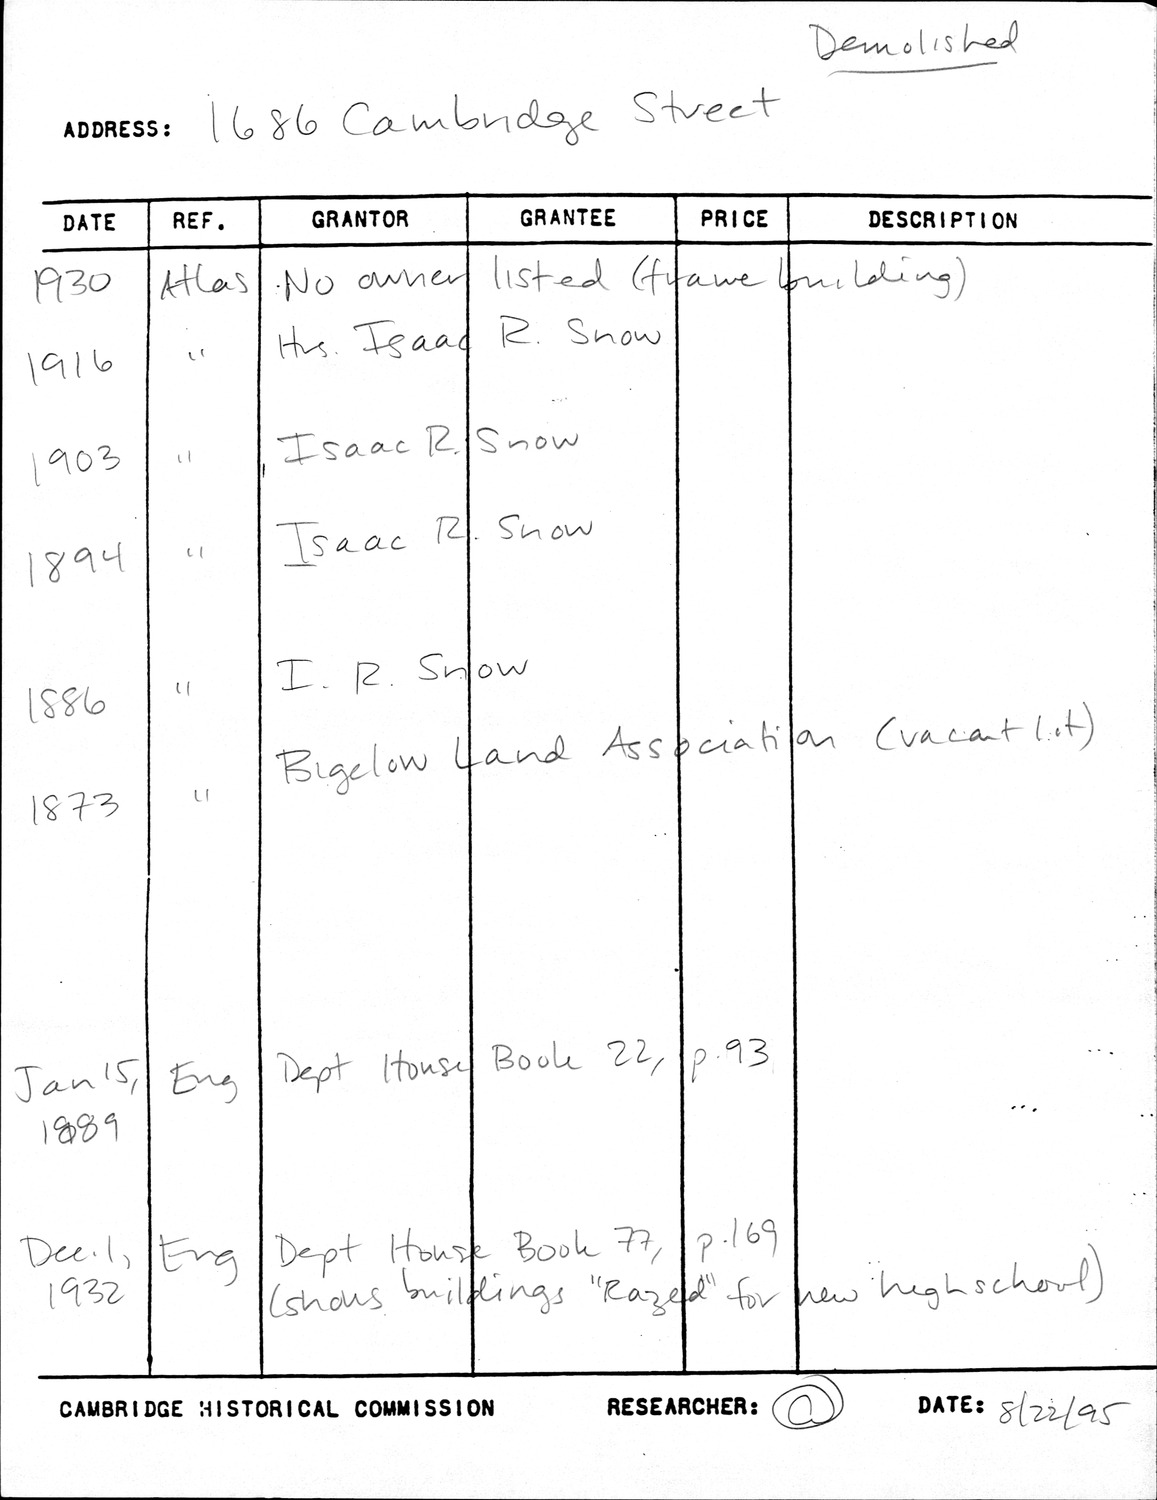 Demolished
ADDRESS: 1686 Cambridge Street
DATE REF. GRANTOR GRANTEE PRICE DESCRIPTION
1930 Atlas No owner listed (frame building)
1916 " Hrs. Isaac R. Snow
1903 " Isaac R. Snow
1894 " Isaac R. Snow
1886 " I. R. Snow
1873 " Bigelow Land Association (vacant lot)
Jan 15, Eng Dept House Book 22, p. 93
1889
Dec. 1, Eng Dept House Book 77, p. 169
1932 (shows buildings "Razed" for new high school)
CAMBRIDGE HISTORICAL COMMISSION RESEARCHER: DATE: 8/22/95